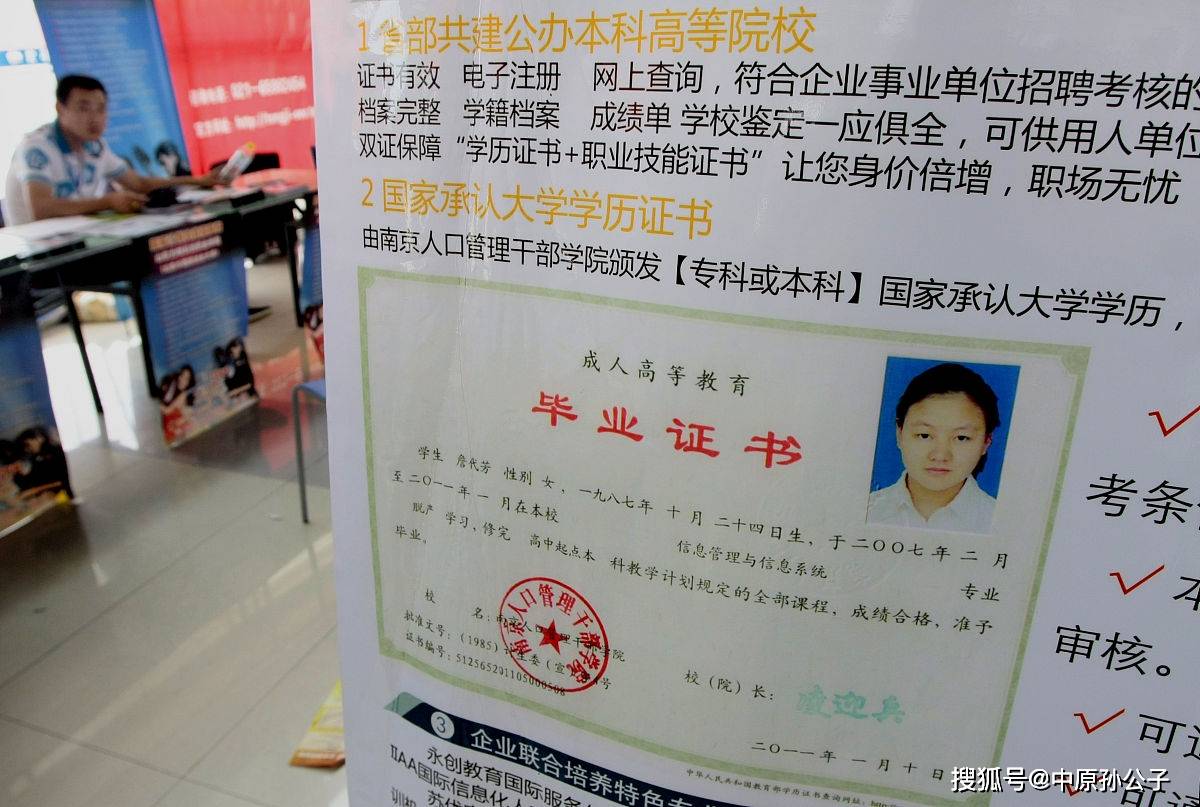 1 省部共建公办本科高等院校
证书有效 电子注册 网上查询，符合企业事业单位招聘考核的
档案完整 学籍档案 成绩单 学校鉴定一应俱全，可供用人单位
双证保障“学历证书+职业技能证书”让您身价倍增，职场无忧
2 国家承认大学学历证书
由南京人口管理干部学院颁发【专科或本科】国家承认大学学历，
成人高等教育
毕业证书
学生 詹代芳 性别 女，一九八七年 十月 二十四日生，于二〇〇七年 二月
至二〇一一年 一月在本校 信息管理与信息系统 专业
脱产 学习，修完 高中起点本 科教学计划规定的全部课程，成绩合格，准予
毕业。
校 名：南京人口管理干部学院
批准文号：(1985)计生委(宣)
证书编号：512565201105000508
南京人口管理干部学院
校（院）长：
二〇一一年 一月十日
中华人民共和国教育部学历证书查询网址：
3 企业联合培养特色专
永创教育国际服务
IIAA国际信息化人
考条
本
审核。
可
搜狐号@中原孙公子